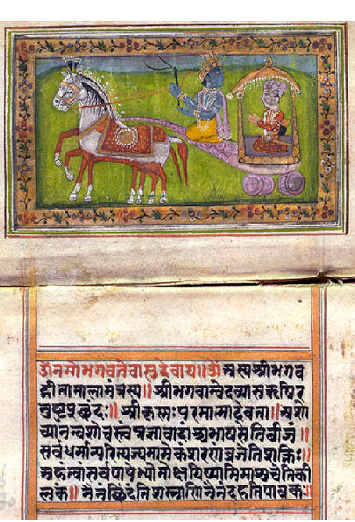 ॐनमोभगवतेवासुदेवाय॥ॐअस्यश्रीभगव
द्गीतामालामंत्रस्य॥श्रीभगवान्वेदव्यासऋषिर
नुष्टुप्छंदः॥श्रीकृष्णःपरमात्मादेवता॥अशो
च्यानन्वशोचस्त्वंप्रज्ञावादांश्चभाषसेतिबीजं॥
सर्वधर्मान्परित्यज्यमामेकंशरणंव्रजेतिशक्तिः॥
अहंत्वांसर्वपापेभ्योमोक्षयिष्यामिमाशुचेतिकी
लकं॥नैनंछिंदंतिशस्त्राणिनैनंदहतिपावकः॥